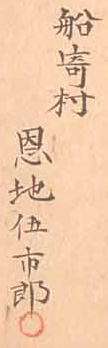 船寄村
恩地伍市郎